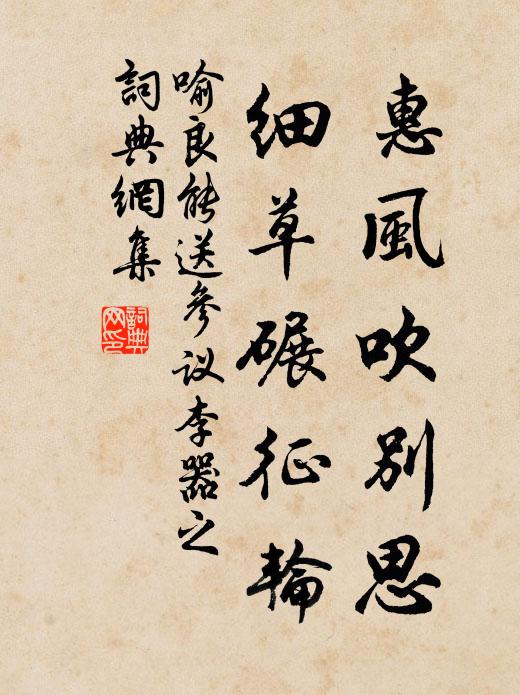 惠風吹別思
細草碾征輪
喻良能送參议李器之
詞典網集
詞典
网印